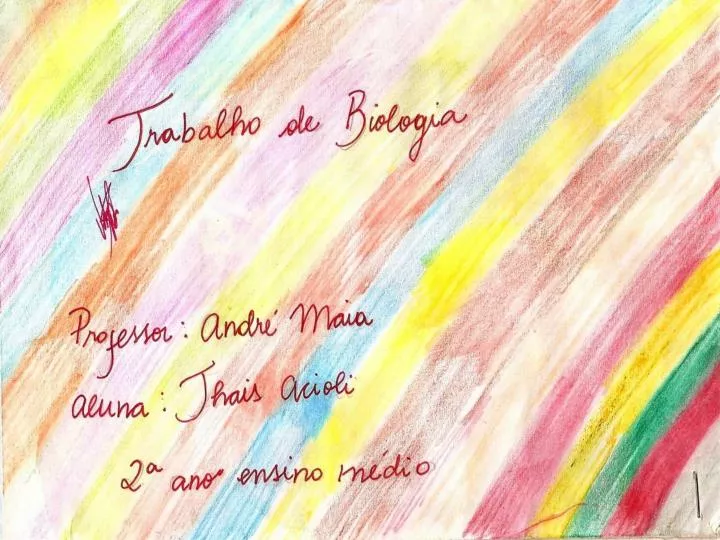 Trabalho de Biologia
Professor: André Maia
Aluna: Thais Acioli
2ª ano ensino médio